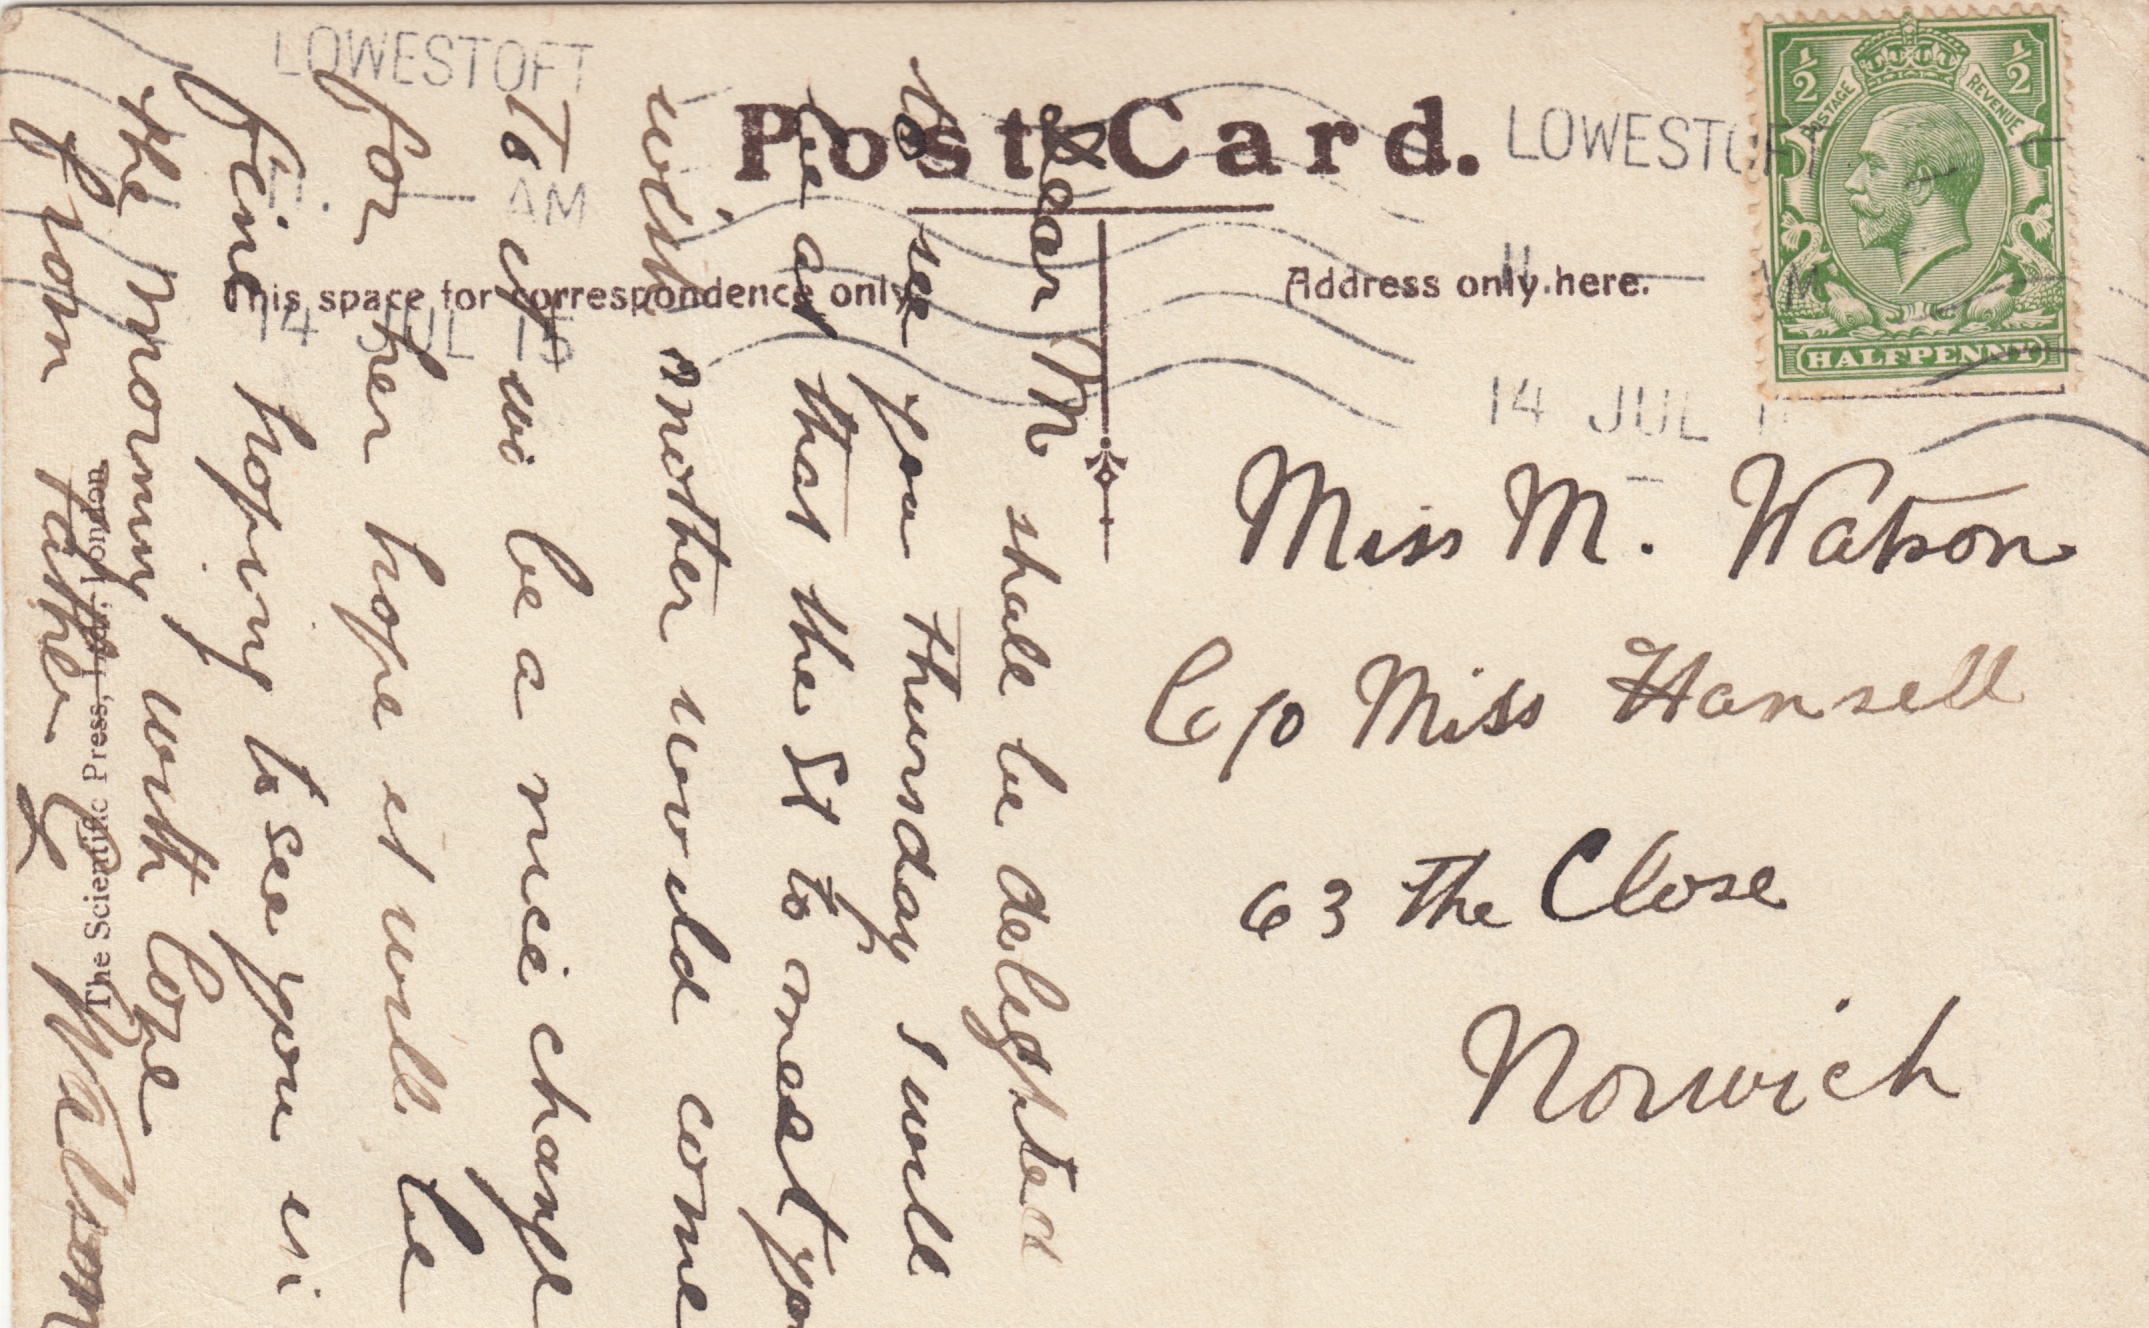 LOWESTOFT
11. — AM
14 JUL 15
Post Card.
LOWESTOFT
11. — AM
14 JUL 1
½ ½
POSTAGE REVENUE
HALFPENNY
This space for correspondence only
Address only here.
Dear M shall be delighted
to see you Thursday I will
be at that the St to meet you
wish mother would come
To it wi be a nice change
for her hope it will be
fine hoping to see you in
the morning with love
from Father G Watson
The Scientific Press, Ltd., London
Miss M. Watson
C/o Miss Hansell
63 The Close
Norwich